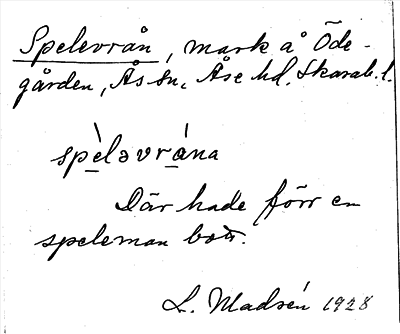 Spelevrån, mark å Öde-
gården, Ås sn, Åse hd. Skarab. l.
spèləvrána
Där hade förr en
speleman bott.
L. Madsén 1928